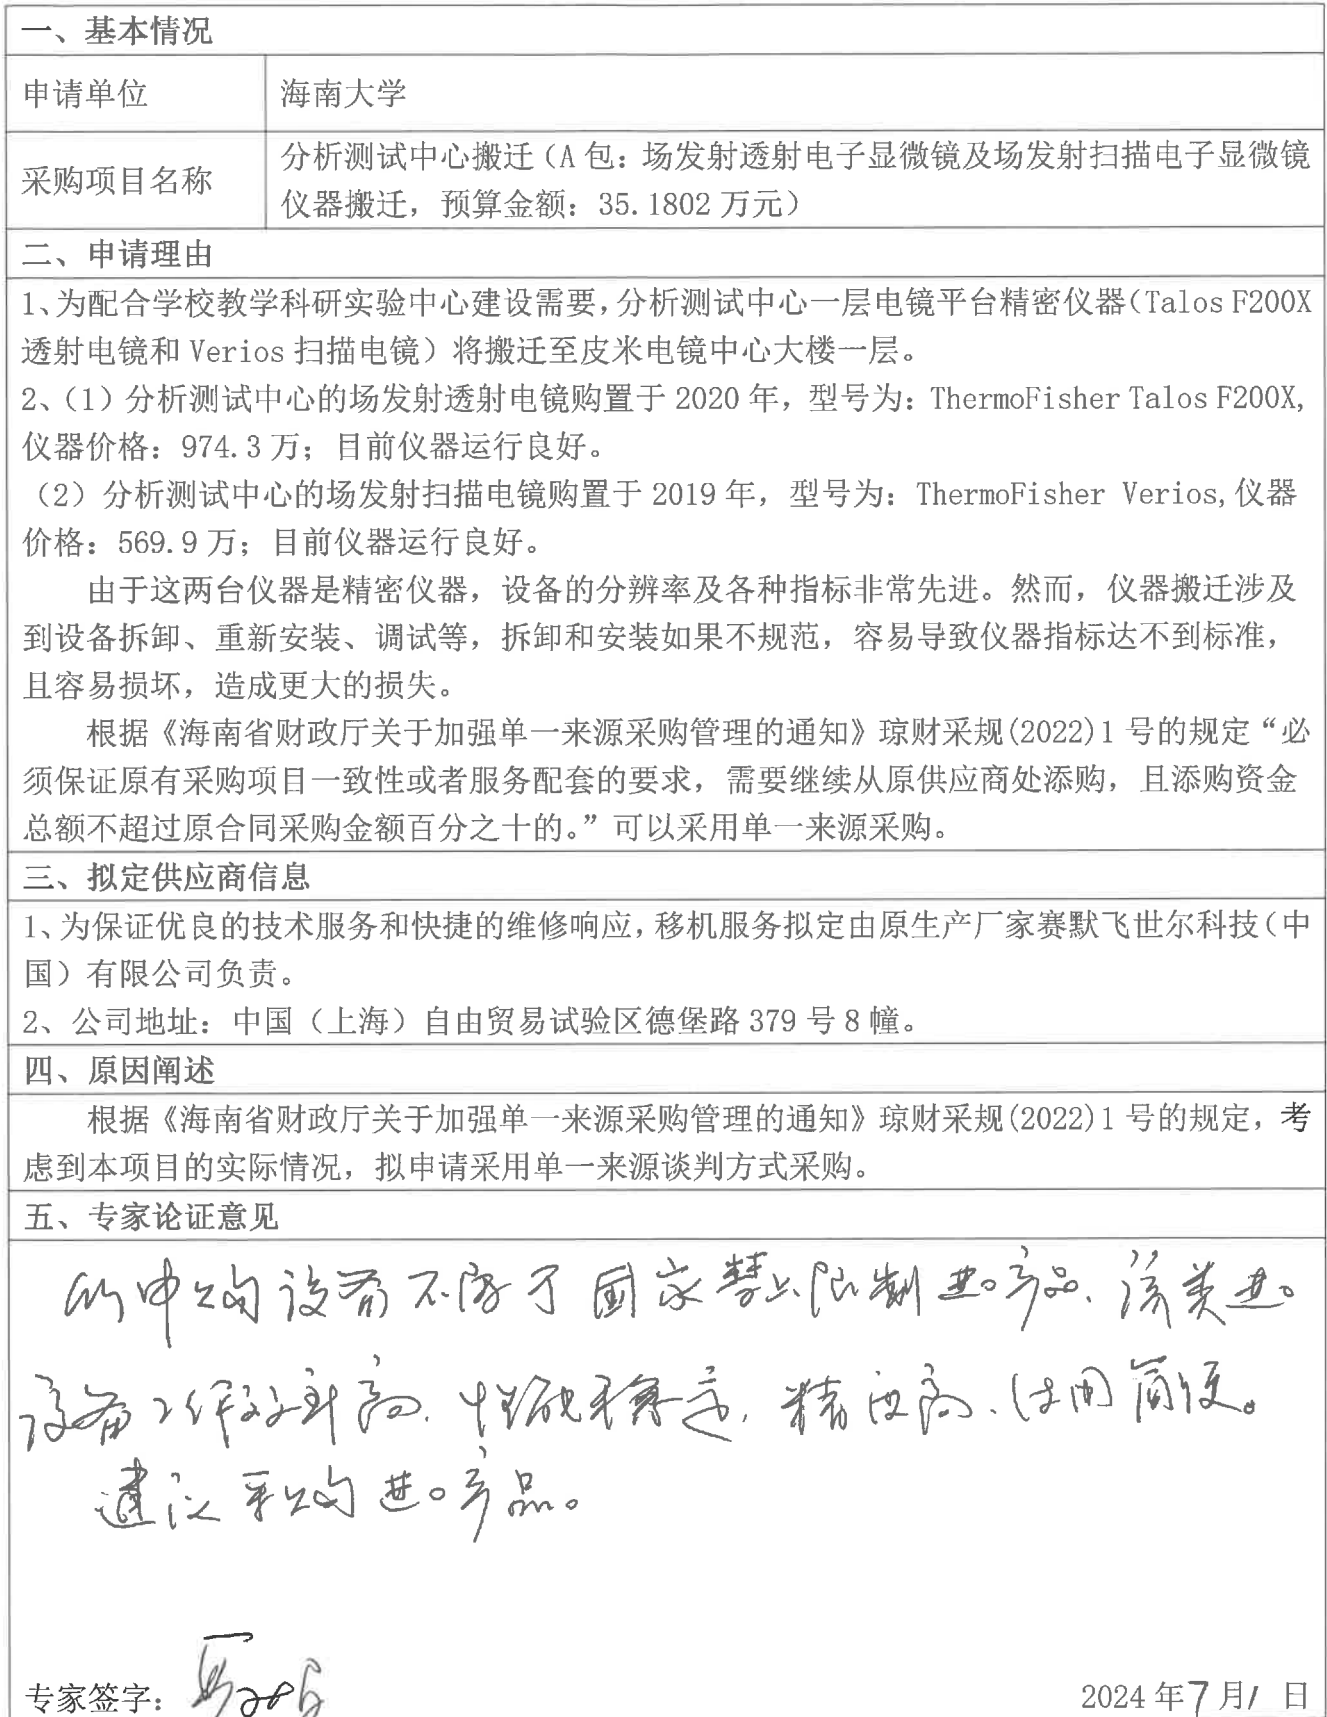 一、基本情况
申请单位
海南大学
采购项目名称
分析测试中心搬迁（A 包：场发射透射电子显微镜及场发射扫描电子显微镜
仪器搬迁，预算金额：35.1802 万元）
二、申请理由
1、为配合学校教学科研实验中心建设需要,分析测试中心一层电镜平台精密仪器（Talos F200X
透射电镜和 Verios 扫描电镜）将搬迁至皮米电镜中心大楼一层。
2、（1）分析测试中心的场发射透射电镜购置于 2020 年，型号为：ThermoFisher Talos F200X,
仪器价格：974.3 万；目前仪器运行良好。
（2）分析测试中心的场发射扫描电镜购置于 2019 年，型号为：ThermoFisher Verios,仪器
价格：569.9 万；目前仪器运行良好。
由于这两台仪器是精密仪器，设备的分辨率及各种指标非常先进。然而，仪器搬迁涉及
到设备拆卸、重新安装、调试等，拆卸和安装如果不规范，容易导致仪器指标达不到标准，
且容易损坏，造成更大的损失。
根据《海南省财政厅关于加强单一来源采购管理的通知》琼财采规(2022)1 号的规定“必
须保证原有采购项目一致性或者服务配套的要求，需要继续从原供应商处添购，且添购资金
总额不超过原合同采购金额百分之十的。”可以采用单一来源采购。
三、拟定供应商信息
1、为保证优良的技术服务和快捷的维修响应,移机服务拟定由原生产厂家赛默飞世尔科技（中
国）有限公司负责。
2、公司地址：中国（上海）自由贸易试验区德堡路 379 号 8 幢。
四、原因阐述
根据《海南省财政厅关于加强单一来源采购管理的通知》琼财采规(2022)1 号的规定，考
虑到本项目的实际情况，拟申请采用单一来源谈判方式采购。
五、专家论证意见
所申购设备不属于国家禁止限制进口产品、该类进口
设备工作效率高、性能稳定、精度高、使用简便。
建议采购进口产品。
专家签字：
2024 年 7 月 1 日